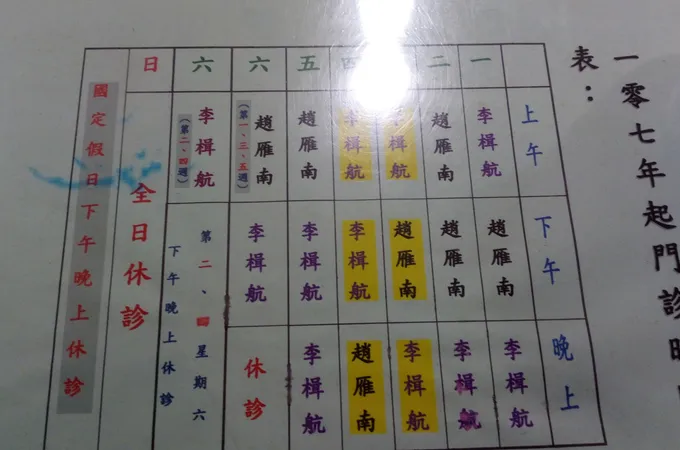 一零七年起門診時
表：
一
二
四
五
六
六
日
上午
李楫航
趙雁南
李楫航
李楫航
趙雁南
趙雁南
(第一、三、五週)
李楫航
(第二、四週)
下午
趙雁南
趙雁南
趙雁南
李楫航
李楫航
李楫航
第二、四星期六
下午晚上休診
晚上
李楫航
李楫航
李楫航
趙雁南
李楫航
休診
全日休診
國定假日下午晚上休診